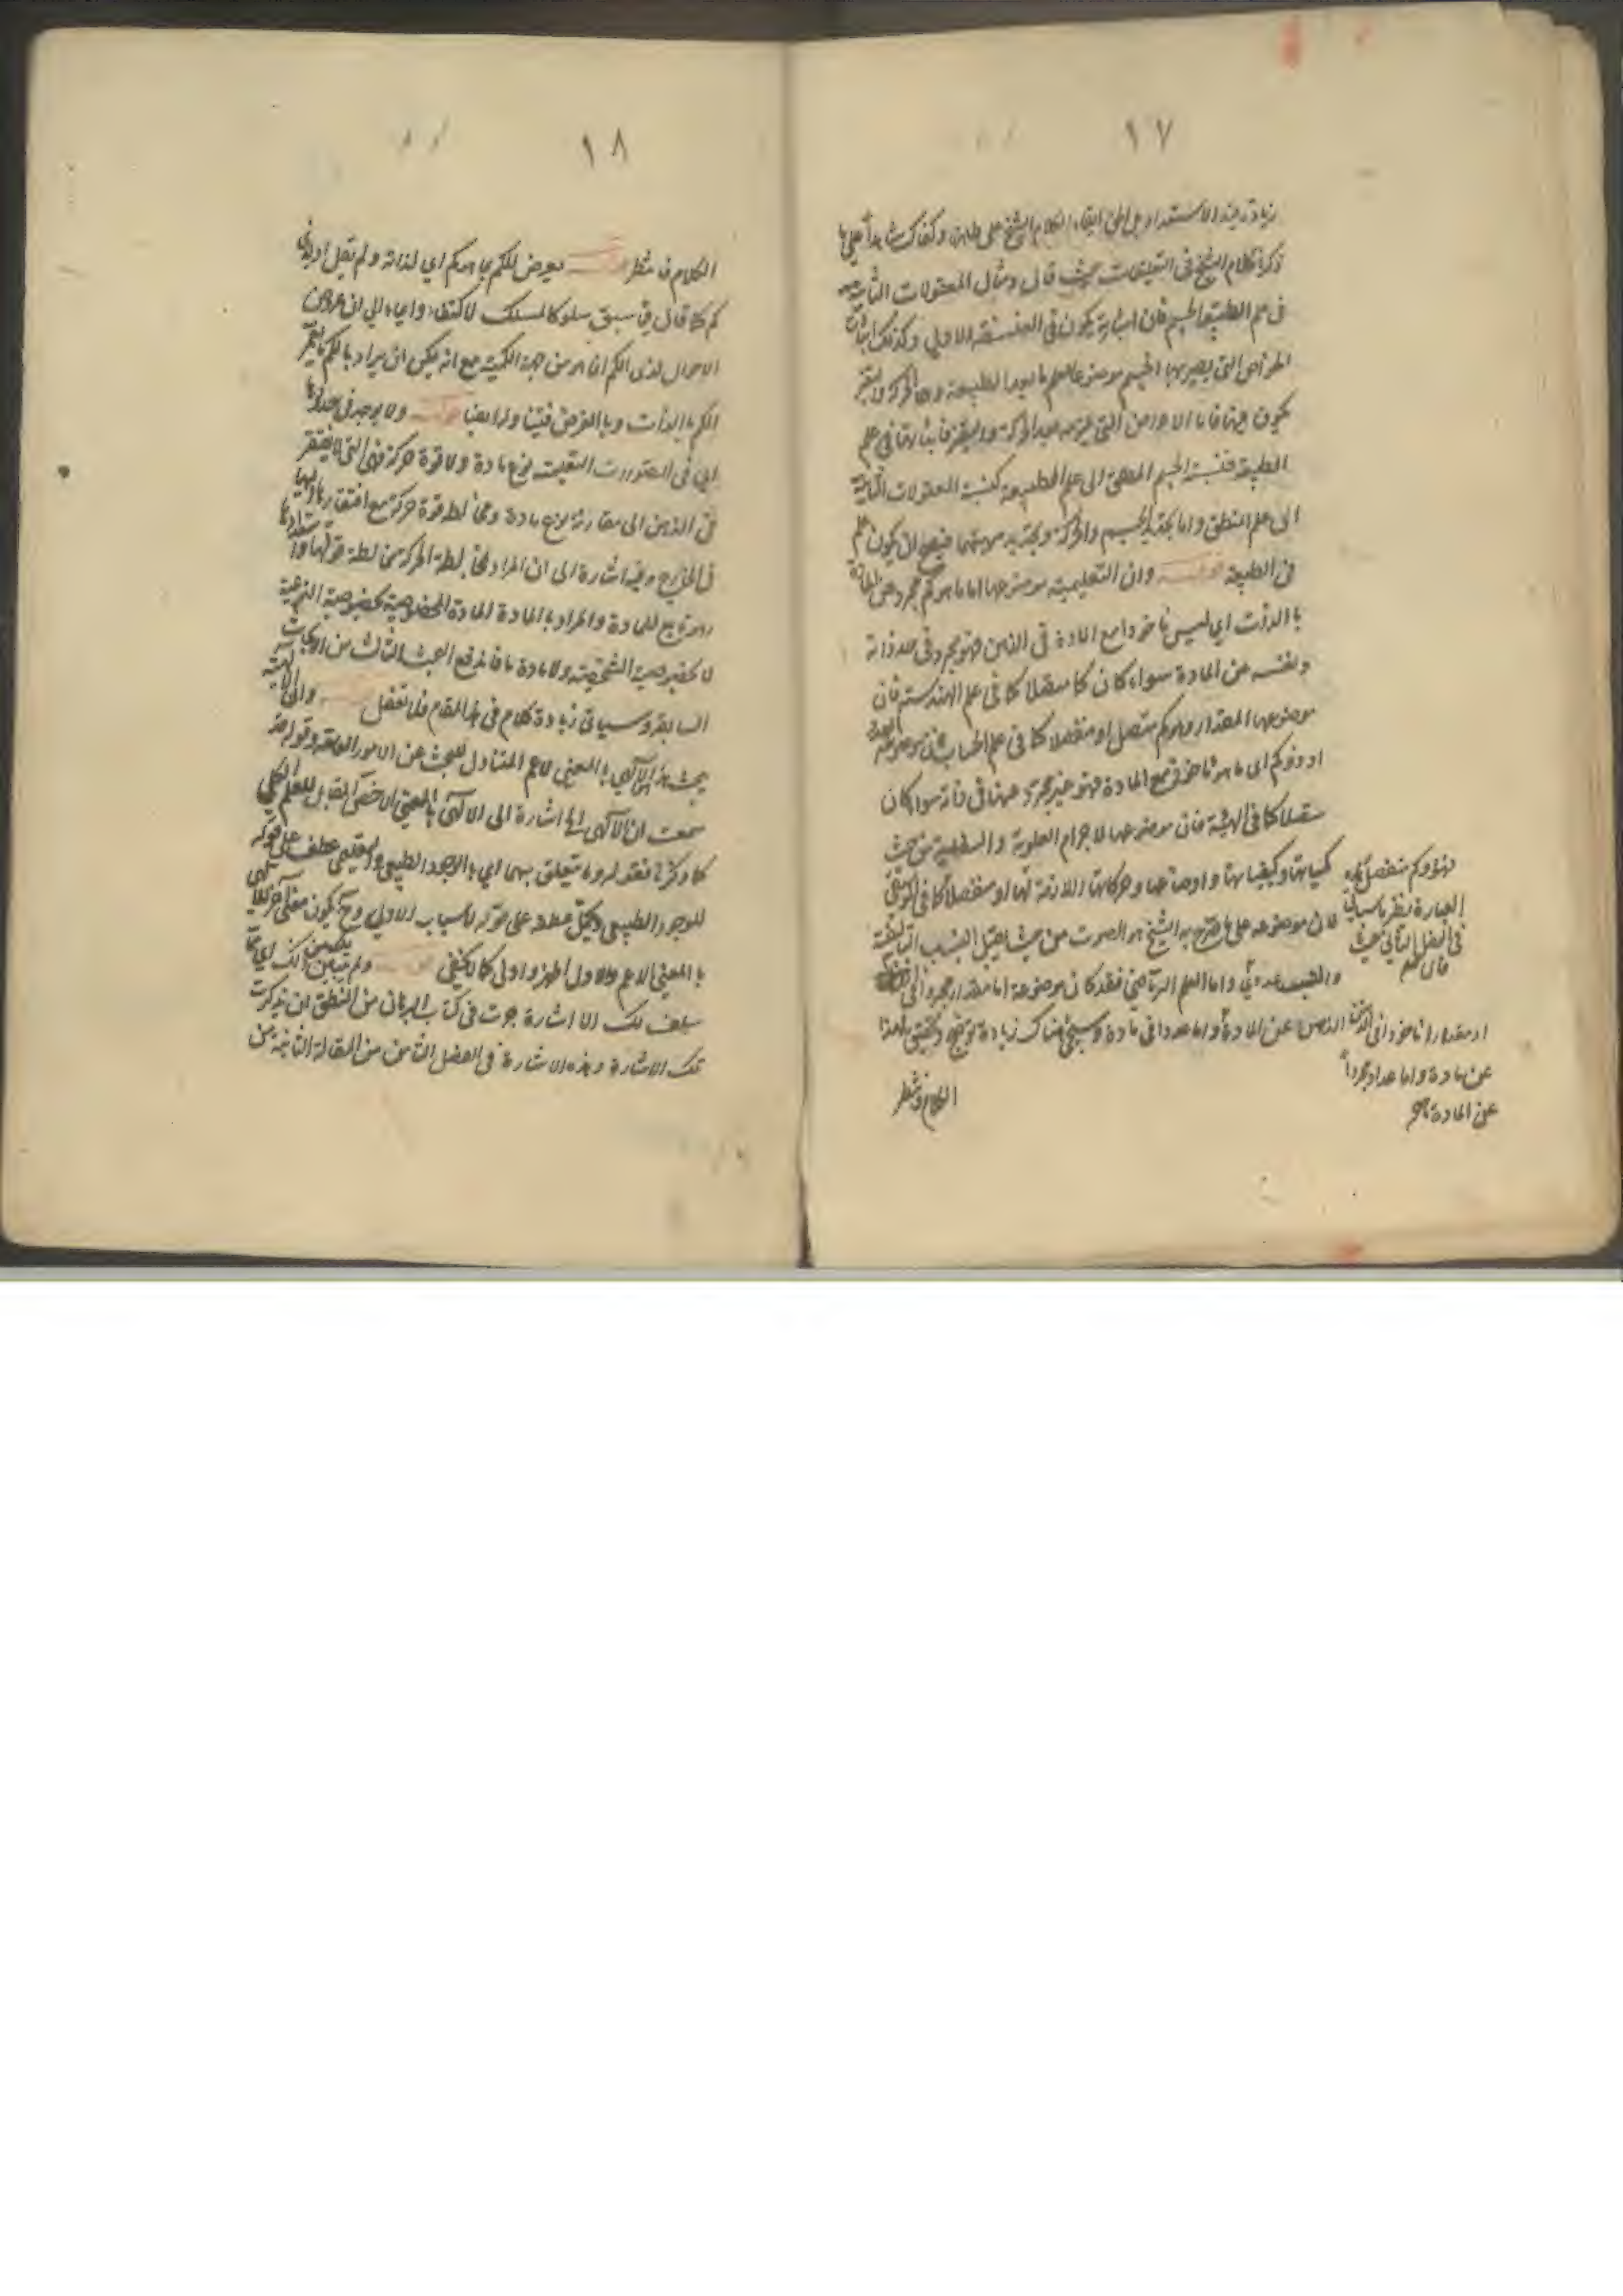 ١٧
زيادة الاستعداد بل الحق ابقاء الكلام الشيخ على ظاهره وكفاك شاهدا على ما
ذكرنا كلام الشيخ فى التعليقات حيث قال ومثال المعقولات الثانية
فى علم الطبيعة الجسم فان اثباته يكون فى الفلسفة الاولى وكذلك اثبات
الخواص التى يصير بها الجسم موضوعا لعلم الطبيعة وهى الحركة والتغير
يكون فيها فاما الاعراض التى تلزم بعد الحركة والتغير فاثباتها فى علم
الطبيعة فنسبة الجسم المطلق الى علم الطبيعة كنسبة المعقولات الثانية
الى علم المنطق واما تحديد الجسم والحركة وتحديد مهيتهما فيصح ان يكون علم
فى الطبيعة قوله وان التعليمية موضوعها اما ما هو كم مجرد عن المادة
بالذات اى ليس مأخوذا مع المادة فى الذهن فهو مجرد فى حد ذاته
ونفسه عن المادة سواء كان كما متصلا كما فى علم الهندسة فان
موضوعها المقدار وهو كم متصل او منفصلا كما فى علم الحساب فان موضوعه العدد
او ذو كم اى ما هو مأخوذ مع المادة فهو غير مجرد عنها فى ذاته سواء كان
متصلا كما فى الهيئة فان موضوعها الاجرام العلوية والسفلية من حيث
كمياتها وكيفياتها واوضاعها وحركاتها اللازمة لها او منفصلا كما فى الموسيقى
فان موضوعه على ما صرح به الشيخ هو الصوت من حيث يقبل النسب التأليفية
والنسب عددى واما العلم الرياضى فقد كان موضوعه اما مقدارا مجردا فى
الذهن عن المادة واما عددا فى مادة وسيجئ هناك زيادة توضيح وتحقيق لهذا
الكلام فانتظر
فهو ذو كم منفصل
العبارة بنظر ما سياتى
فى الفصل الثانى حيث
قال
او مقدارا مأخوذا فى الذهن
عن مادة واما عددا مجردا
عن المادة
١٨
الكلام فانتظر قوله يعرض للكم بما هو كم اى لذاته ولم يقل او لذى
كم كما قال فيما سبق سلوكا لمسلك الاكتفاء وايماء الى ان عروض
الاحوال لذى الكم انما هو من جهة الكمية مع انه يمكن ان يراد بالكم ما يعم
الكم بالذات وبالعرض قوله ولا يوجد فى حدودها
اى فى المحدودات التعليمية نوع مادة ولا قوة حركة فهى التى لا يفتقر
فى الذهن الى مقارنة نوع مادة ومخالطة قوة حركة مع افتقارها اليها
فى الخارج وفيه اشارة الى ان المراد بمخالطة الحركة مخالطة قوتها واستعدادها
وهو تابع للمادة والمراد بالمادة المادة المخصوصة بخصوصية النوعية
لا بخصوصية الشخصية ولا مادة ما فاندفع البحث الثالث من الابحاث
السابقة وسيأتى زيادة كلام فى هذا المقام فلا تغفل قوله والالهية
يبحث هذا الالهى بالمعنى الاعم المتناول للبحث عن الامور العامة وقوله
سمعت ان الالهى الخ اشارة الى الالهى بالمعنى الاخص المقابل للعلم الكلى
كما ذكرنا فقوله وما يتعلق بهما اى بالوجود الطبيعى والتعليمى عطف على قوله
للوجود الطبيعى ويحتمل عطفه على قوله الاسباب الاولى وح يكون معنى آخر للالهى
بالمعنى الاعم والاول اظهر واولى كما لا يخفى قوله ولم يتبين لك
سلف لك الا اشارة جرت فى كتاب البرهان من المنطق ان تذكرت
تلك الاشارة وهذه الاشارة فى الفصل الثامن من المقالة الثانية من